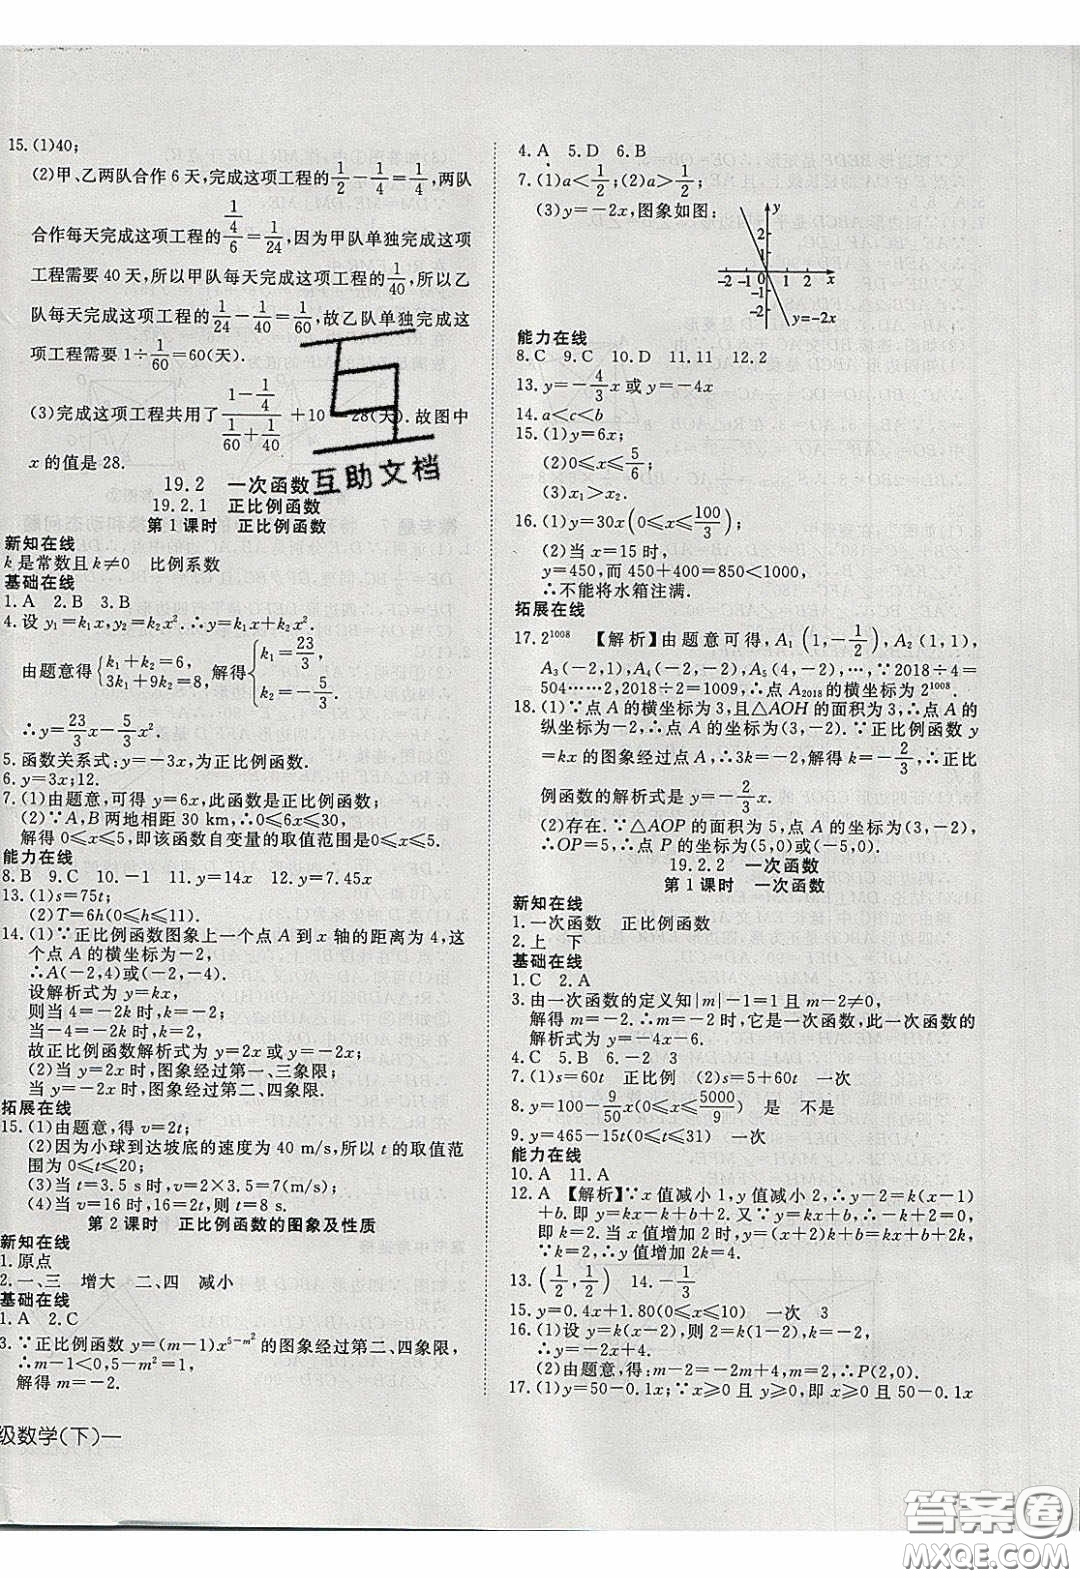 15.(1)40;
(2)甲、乙两队合作 6 天，完成这项工程的 1/2 - 1/4 = 1/4，两队
合作每天完成这项工程的 (1/4)/6 = 1/24，因为甲队单独完成这项
工程需要 40 天，所以甲队每天完成这项工程的 1/40，所以乙
队每天完成这项工程的 1/24 - 1/40 = 1/60，故乙队单独完成这
项工程需要 1÷1/60=60(天).
(3)完成这项工程共用了 (1-1/4)/(1/60+1/40)+10=28(天).故图中
x 的值是 28.
19.2 一次函数
19.2.1 正比例函数
第 1 课时 正比例函数
新知在线
k 是常数且 k≠0 比例系数
基础在线
1.A 2.B 3.B
4.设 y₁=k₁x,y₂=k₂x².∴y=k₁x+k₂x².
由题意得{k₁+k₂=6, 3k₁+9k₂=8, 解得{k₁=23/3, k₂=-5/3.
∴y=23/3x-5/3x².
5.函数关系式:y=-3x,为正比例函数.
6.y=3x;12.
7.(1)由题意,可得 y=6x,此函数是正比例函数;
(2)∵A,B 两地相距 30 km,∴0≤6x≤30,
解得 0≤x≤5,即该函数自变量的取值范围是0≤x≤5.
能力在线
8.B 9.C 10.-1 11.y=14x 12.y=7.45x
13.(1)s=75t;
(2)T=6h(0≤h≤5).
14.(1)∵正比例函数图象上一个点 A 到 x 轴的距离为 4,这
个点 A 的横坐标为-2,
∴A(-2,4)或(-2,-4).
设解析式为 y=kx,
则当 4=-2k时,k=-2;
当-4=-2k时,k=2;
故正比例函数解析式为 y=2x 或 y=-2x;
(2)当 y=2x 时,图象经过第一、三象限;
当 y=-2x 时,图象经过第二、四象限.
拓展在线
15.(1)由题意,得 v=2t;
(2)因为小球到达坡底的速度为 40 m/s,所以 t 的取值范
围为 0≤t≤20;
(3)当 t=3.5 s时,v=2×3.5=7(m/s);
(4)当 v=16 时,16=2t,则 t=8 s.
第 2 课时 正比例函数的图象及性质
新知在线
1.原点
2.一、三 增大 二、四 减小
基础在线
1.A 2.C
3.∵正比例函数 y=(m-1)x^(5-m²) 的图象经过第二、四象限,
∴m-1<0,5-m²=1,
解得 m=-2.
级数学(下)—
4.A 5.D 6.B
7.(1)a<1/2;(2)a>1/2;
(3)y=-2x,图象如图:
y
2
1
-2 -1 0 1 2 x
-1
-2
y=-2x
能力在线
8.C 9.C 10.D 11.11 12.2
13.y=-4/3x 或 y=-4x
14.a<c<b
15.(1)y=6x;
(2)0≤x≤5/6;
(3)x₁>x₂.
16.(1)y=30x(0≤x≤100/3);
(2)当 x=15 时,
y=450,而 450+400=850<1000,
∴不能将水箱注满.
拓展在线
17.2^1008 【解析】由题意可得,A₁(1,-1/2),A₂(1,1),
A₃(-2,1),A₄(-2,-2),A₅(4,-2),…,∵2018÷4=
504……2,2018÷2=1009,∴点 A₂₀₁₈的横坐标为 2^1008.
18.(1)∵点 A 的横坐标为 3,且△AOH 的面积为 3,∴点 A 的
纵坐标为-2,∴点 A 的坐标为(3,-2).∵正比例函数 y
=kx 的图象经过点 A,∴3k=-2,解得 k=-2/3,∴正比
例函数的解析式是 y=-2/3x.
(2)存在.∵△AOP 的面积为 5,点 A 的坐标为(3,-2),
∴OP=5,∴点 P 的坐标为(5,0)或(-5,0).
19.2.2 一次函数
第 1 课时 一次函数
新知在线
1.一次函数 正比例函数
2.上 下
基础在线
1.C 2.A
3.由一次函数的定义知|m|-1=1 且 m-2≠0,
解得 m=-2.∴m=-2时,它是一次函数,此一次函数的
解析式为 y=-4x-6.
4.C 5.B 6.-2 3
7.(1)s=60t 正比例 (2)s=5+60t 一次
8.y=100-9/50x(0≤x≤5000/9) 是 不是
9.y=465-15t(0≤t≤31) 一次
能力在线
10.A 11.A
12.A 【解析】∵x 值减小 1,y 值减小 2,∴y-2=k(x-1)
+b.即 y=kx-k+b+2.又 y=kx+b,∴-k+b+2=b.
即-k+2=0.∴k=2.当 x 值增加 2 时,y=k(x+2)+b=kx+b+2k,
∵k=2,∴y 值增加 4.
13.(1/2,1/2) 14.-1/3
15.y=0.4x+1.80(0≤x≤10) 一次 3
16.(1)设 y=k(x-2),则 2=k(1-2),∴k=-2,
∴y=-2x+4.
(2)由题意,得 m-2=-2m+4,∴m=2,∴P(2,0).
17.(1)y=50-0.1x;∵x≥0 且 y≥0,即 x≥0 且 50-0.1x
互助文档
答案圈
MXQE.COM